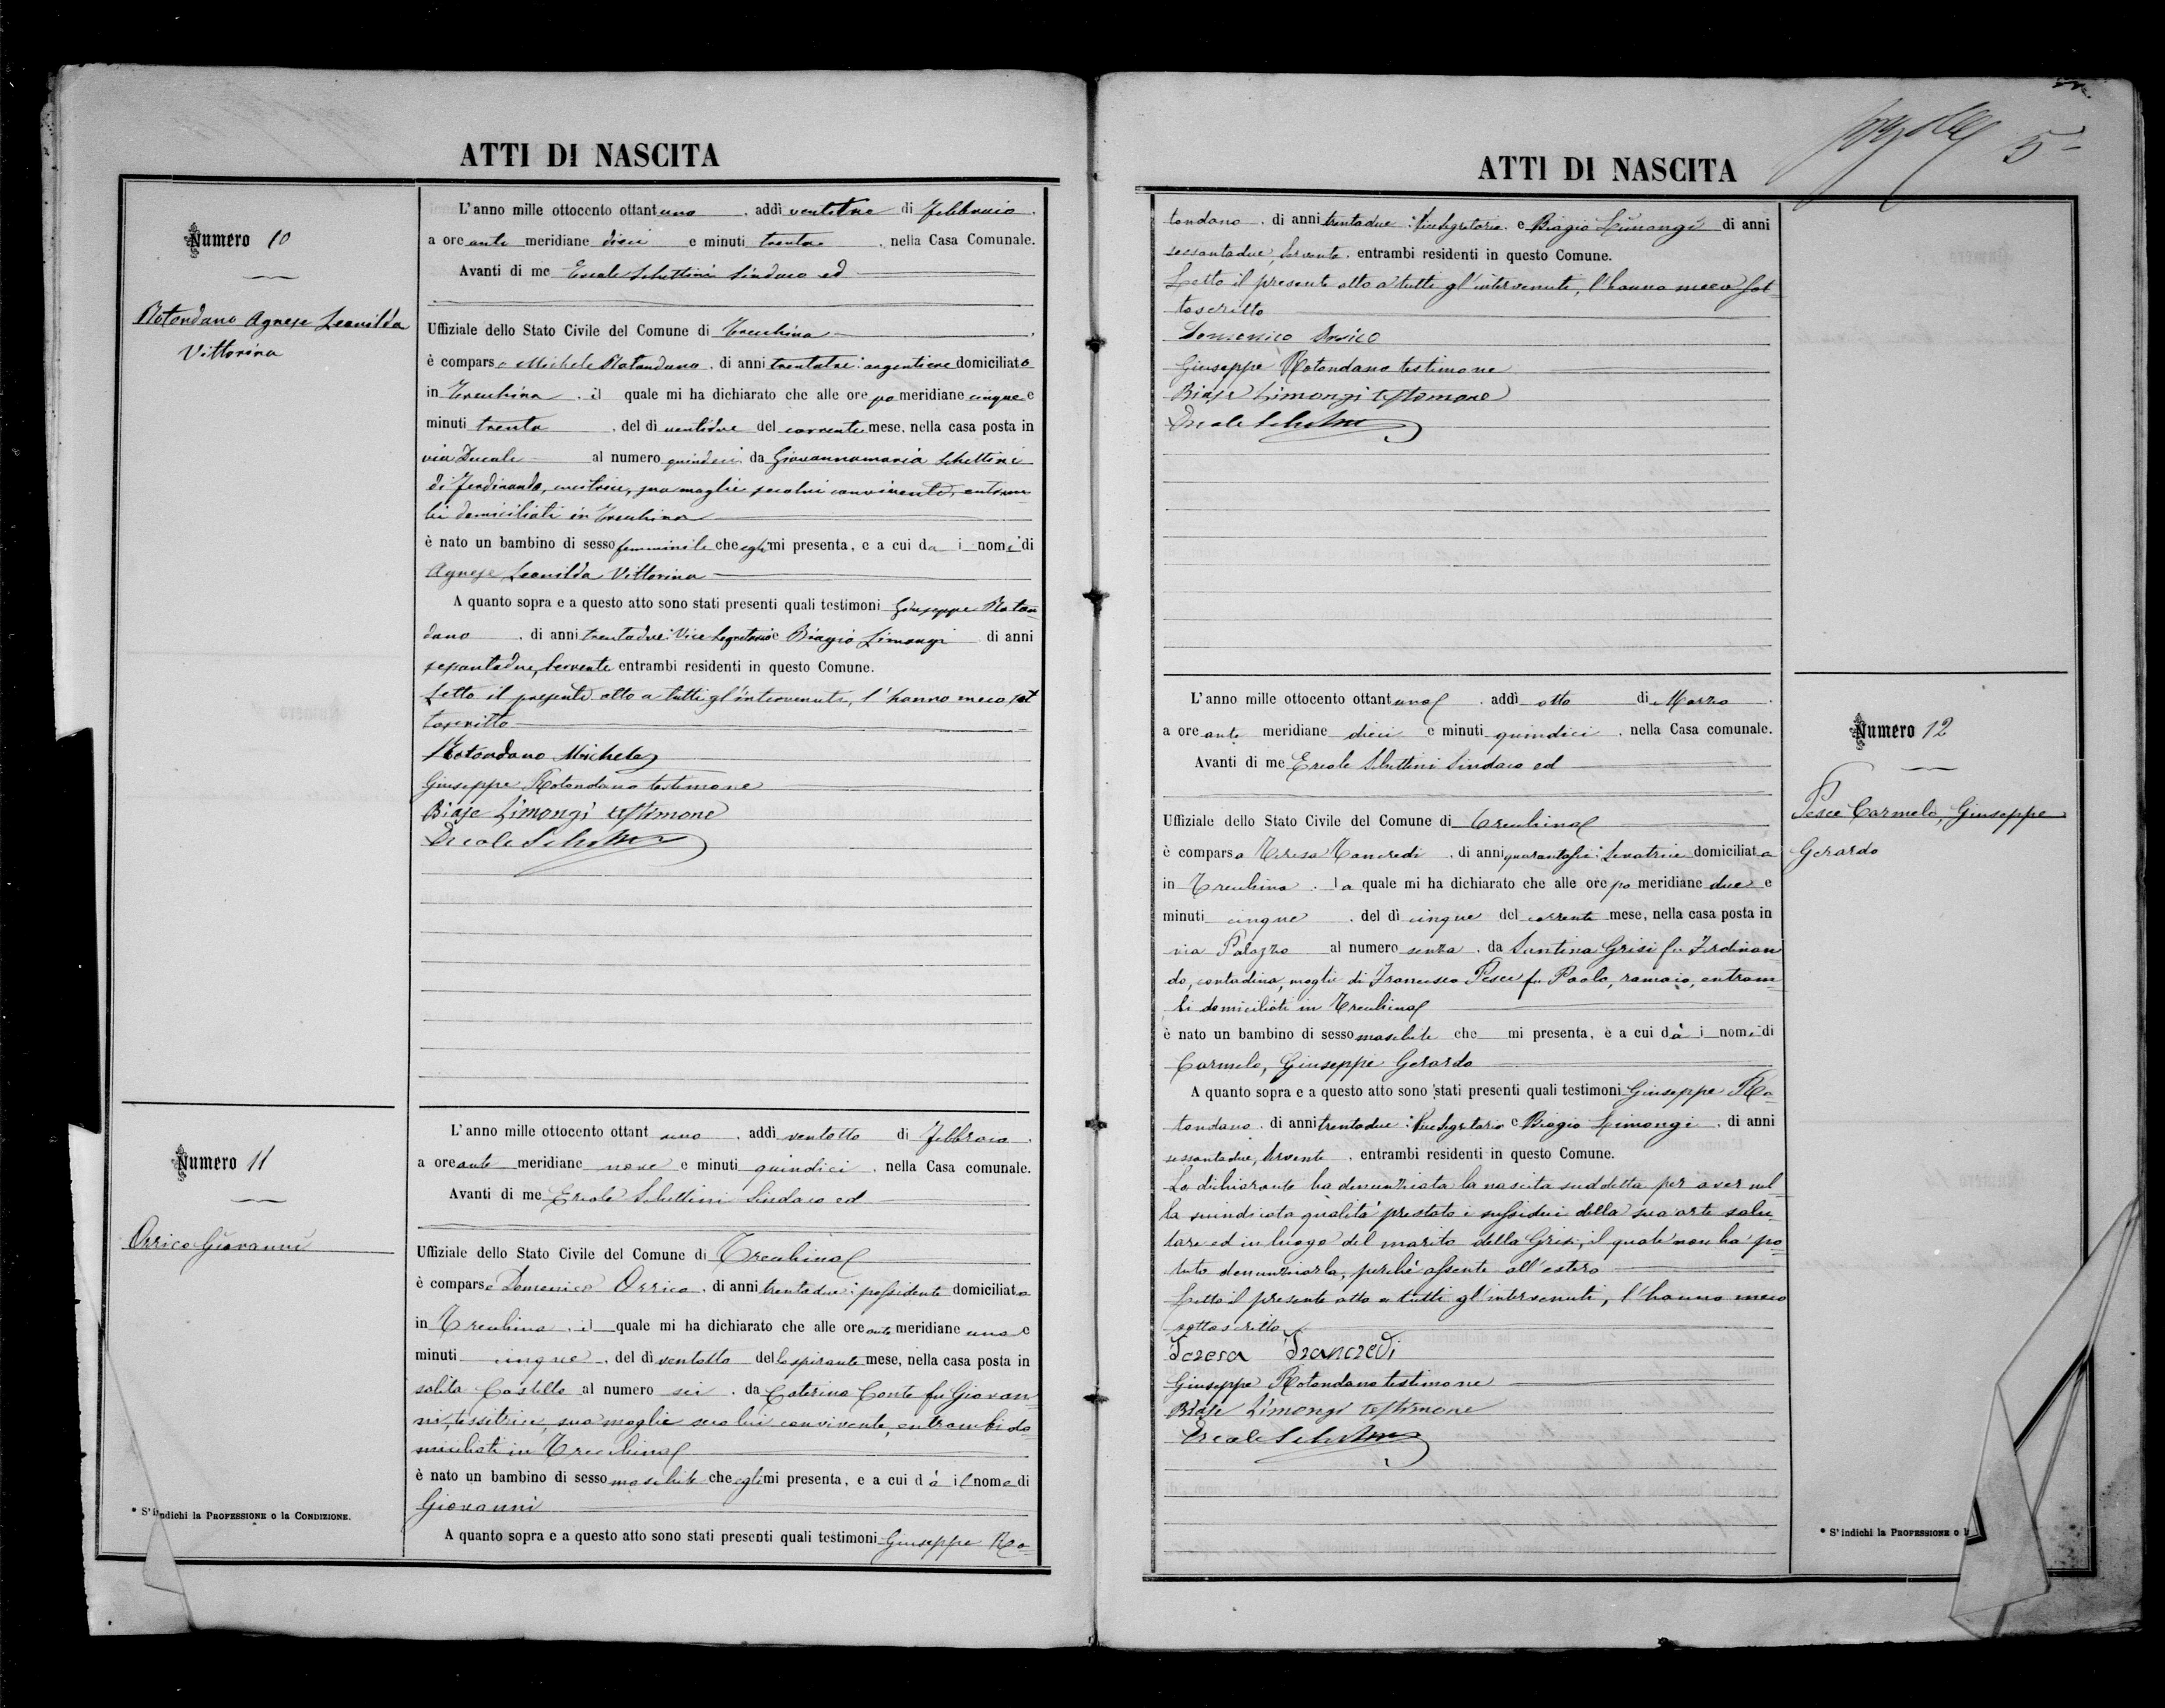 ATTI DI NASCITA
Numero 10
Rotondano Agnese Leonilda
Vittorina
L'anno mille ottocento ottantuno, addì ventitre di Febbraio,
a ore ante meridiane dieci e minuti trenta, nella Casa Comunale.
Avanti di me Ercole Schettini Sindaco ed
Uffiziale dello Stato Civile del Comune di Trecchina
è comparso Michele Rotondano, di anni trentatre: argentiere domiciliato
in Trecchina, il quale mi ha dichiarato che alle ore po meridiane cinque e
minuti trenta, del dì ventidue del corrente mese, nella casa posta in
via Ducale al numero quindici da Giovannamaria Schettini
di Ferdinando, cucitrice, sua moglie secolui convivente, entram
bi domiciliati in Trecchina
è nato un bambino di sesso femminile che egli mi presenta, e a cui da i nomi di
Agnese Leonilda Vittorina
A quanto sopra e a questo atto sono stati presenti quali testimoni Giuseppe Roton
dano, di anni trentadue: Vice Segretario e Biagio Limongi di anni
sessantadue, servente entrambi residenti in questo Comune.
Letto il presente atto a tutti gl'intervenuti, l'hanno meco sot
toscritto
Rotondano Michele
Giuseppe Rotondano testimone
Biase Limongi testimone
Ercole Schettini
Numero 11
Orrico Giovanni
L'anno mille ottocento ottant uno, addì ventotto di Febbraio,
a ore ante meridiane nove e minuti quindici, nella Casa comunale.
Avanti di me Ercole Schettini Sindaco ed
Uffiziale dello Stato Civile del Comune di Trecchina
è comparso Domenico Orrico, di anni trentadue: possidente domiciliato
in Trecchina, il quale mi ha dichiarato che alle ore ante meridiane una e
minuti cinque, del dì ventotto dello spirante mese, nella casa posta in
salita Castello al numero sei, da Caterina Conte fu Giovan
ni, tessitrice, sua moglie seco lui convivente, entrambi do
miciliati in Trecchina
è nato un bambino di sesso maschile che egli mi presenta, e a cui dà il nome di
Giovanni
A quanto sopra e a questo atto sono stati presenti quali testimoni Giuseppe Ro-
* S'indichi la PROFESSIONE o la CONDIZIONE.
5
ATTI DI NASCITA
tondano, di anni trentadue: Vice Segretario, e Biagio Limongi di anni
sessantadue, Servente, entrambi residenti in questo Comune.
Letto il presente atto a tutti gl'intervenuti, l'hanno meco sot
toscritto
Domenico Orrico
Giuseppe Rotondano testimone
Biase Limongi testimone
Ercole Schettini
Numero 12
Pesce Carmelo, Giuseppe
Gerardo
L'anno mille ottocento ottantuno, addì otto di Marzo,
a ore ante meridiane dieci e minuti quindici, nella Casa comunale.
Avanti di me Ercole Schettini Sindaco ed
Uffiziale dello Stato Civile del Comune di Trecchina
è comparsa Teresa Tancredi, di anni quarantasei: Levatrice domiciliata
in Trecchina, la quale mi ha dichiarato che alle ore po meridiane due e
minuti cinque, del dì cinque del corrente mese, nella casa posta in
via Palazzo al numero senza, da Santina Grisi fu Ferdinan
do, contadina, moglie di Francesco Pesce fu Paolo, ramaio, entram
bi domiciliati in Trecchina
è nato un bambino di sesso maschile che mi presenta, e a cui dà i nomi di
Carmelo, Giuseppe Gerardo
A quanto sopra e a questo atto sono stati presenti quali testimoni Giuseppe Ro-
tondano, di anni trentadue: Vice Segretario e Biagio Limongi, di anni
sessantadue, Servente, entrambi residenti in questo Comune.
La dichiarante ha denunziata la nascita suddetta per aver nel
la suindicata qualità prestato i sussidii della sua arte salu
tare ed in luogo del marito della Grisi, il quale non ha po
tuto denunziarla, perchè assente all'estero
Letto il presente atto a tutti gl'intervenuti, l'hanno meco
sottoscritto
Teresa Trancredi
Giuseppe Rotondano testimone
Biase Limongi testimone
Ercole Schettini
* S'indichi la PROFESSIONE o